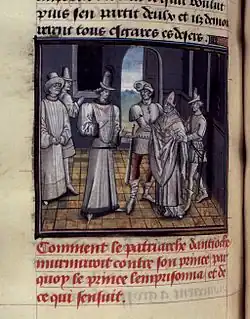 puis sen partit deulx et ilz demo
rerent tous esgares ces desers.
Comment le patriarche dantioche
murmuroit contre son prince par
quoy le prince lemprisonna, et de
ce qui sensuit.